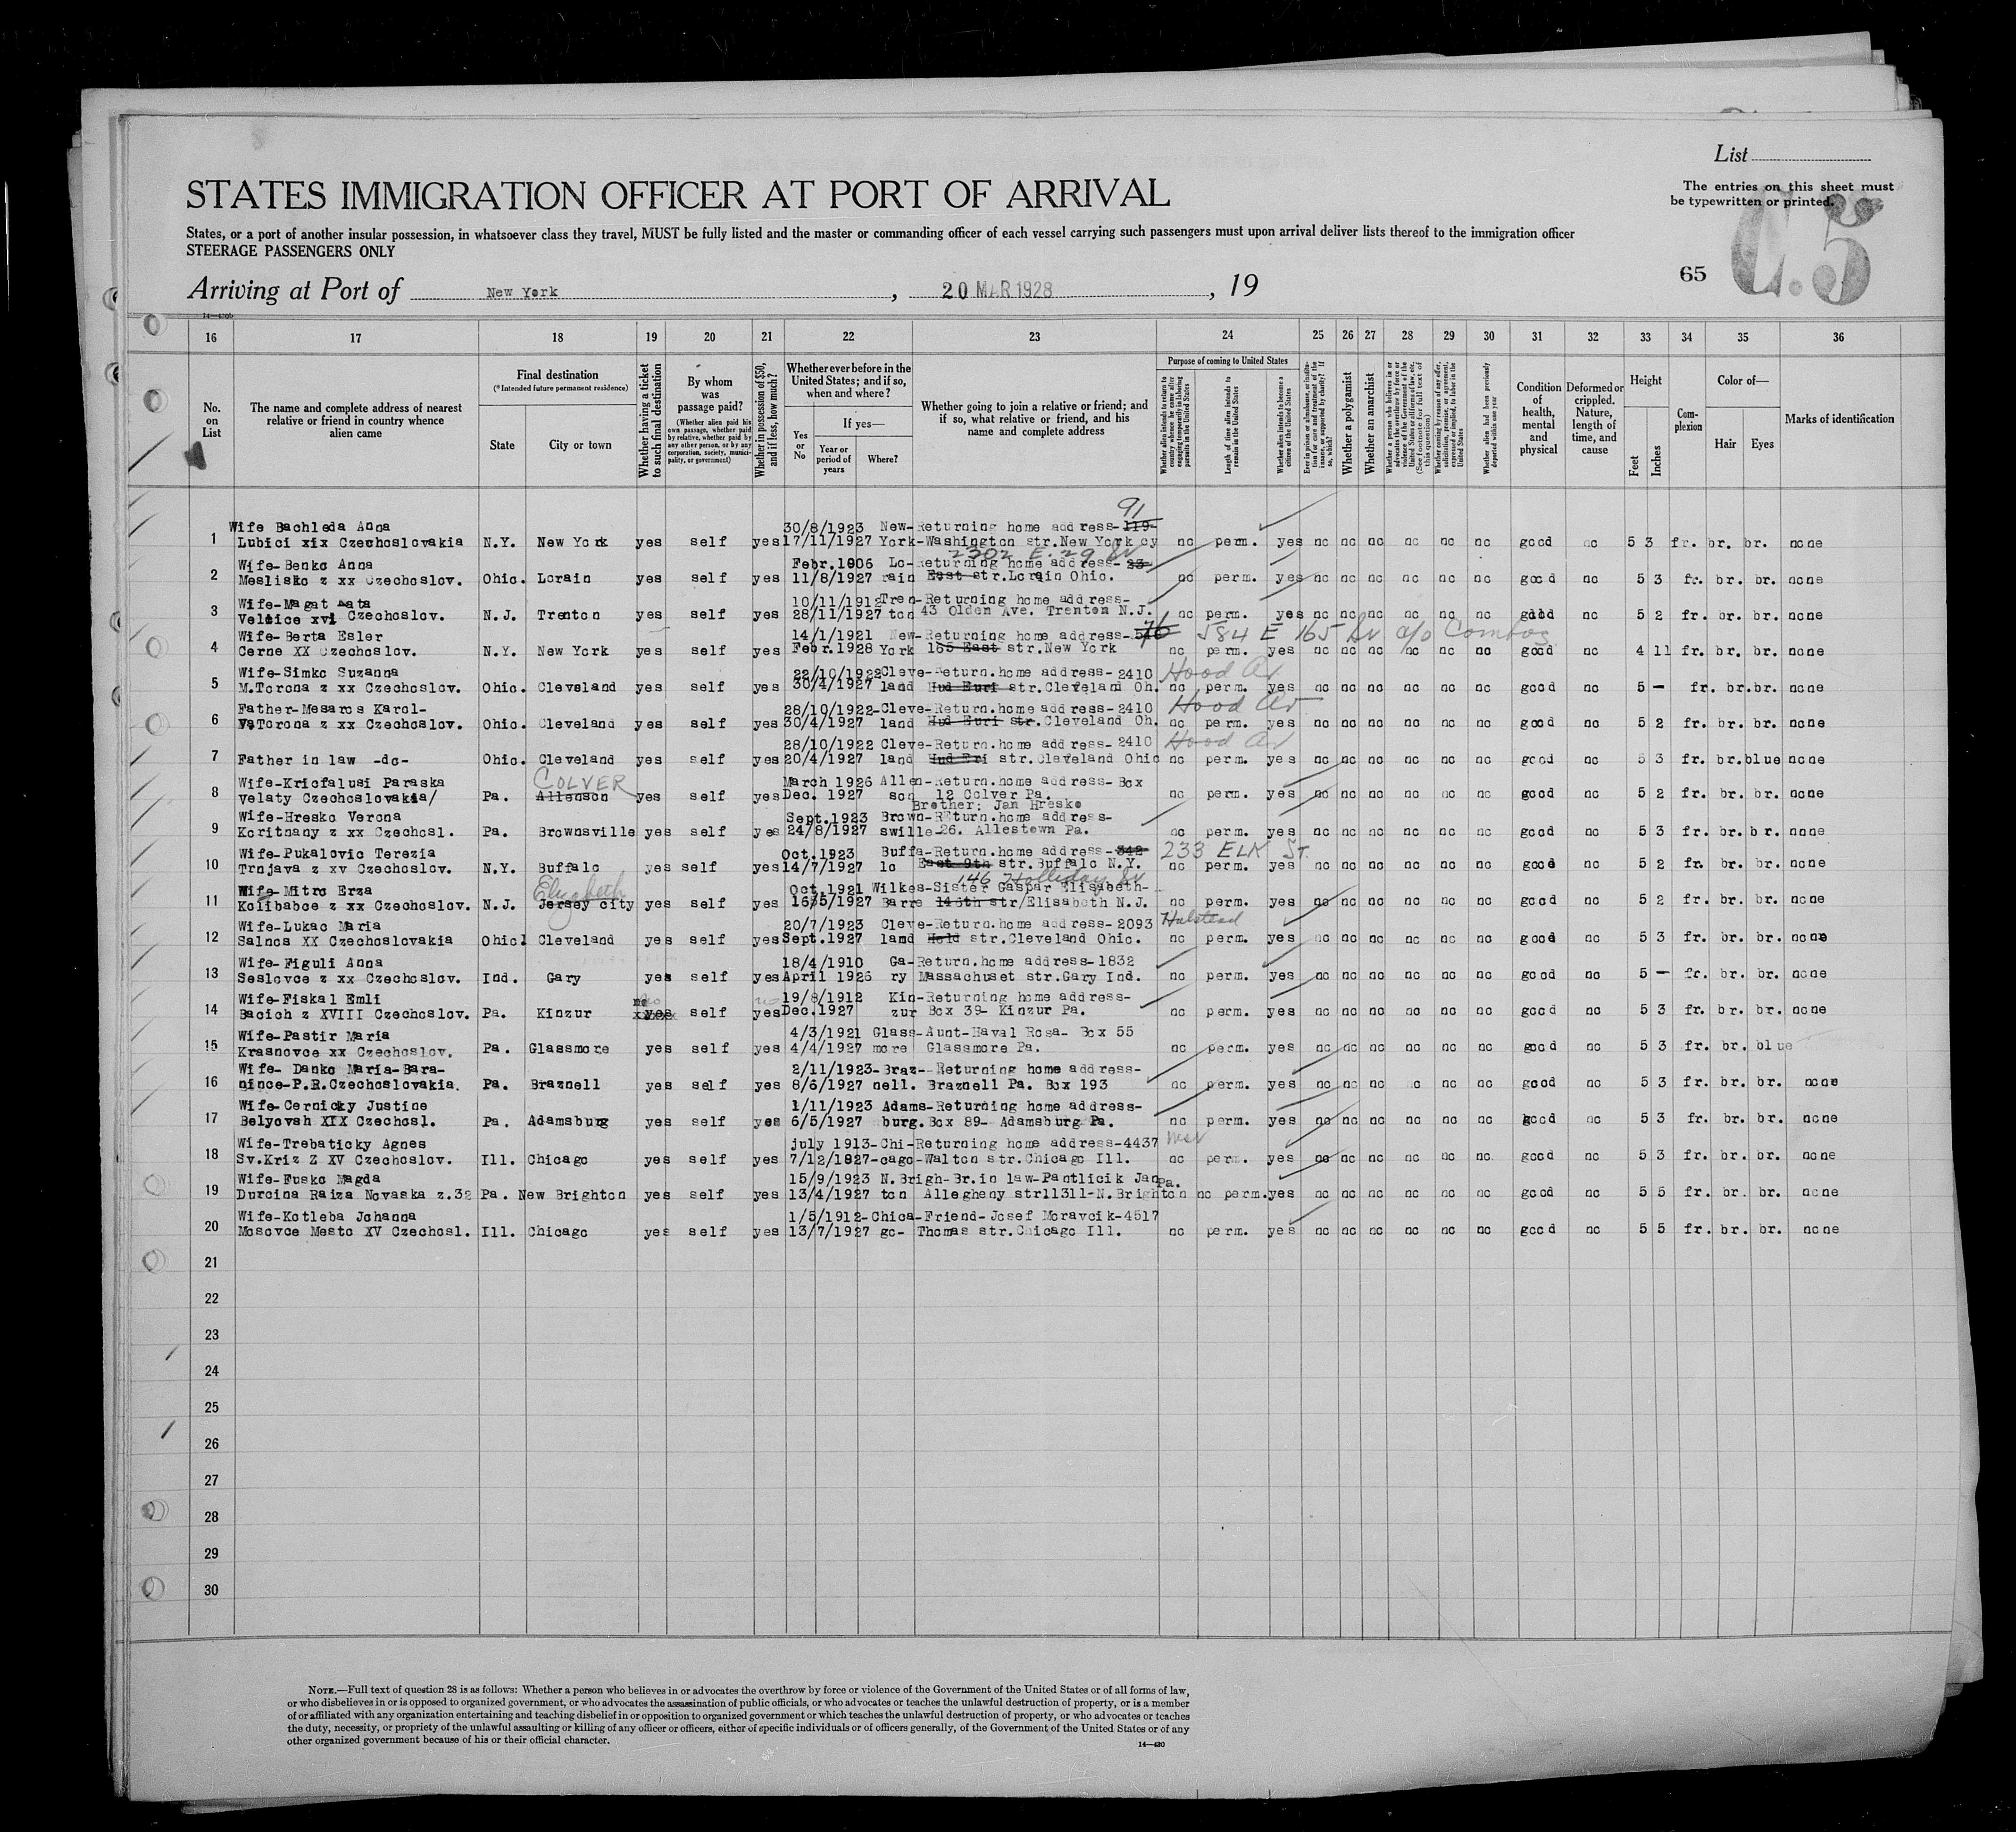 List
The entries on this sheet must
be typewritten or printed.
C.5
STATES IMMIGRATION OFFICER AT PORT OF ARRIVAL
States, or a port of another insular possession, in whatsoever class they travel, MUST be fully listed and the master or commanding officer of each vessel carrying such passengers must upon arrival deliver lists thereof to the immigration officer
STEERAGE PASSENGERS ONLY
65
Arriving at Port of New York, 20 MAR 1928, 19
16 17 18 19 20 21 22 23 24 25 26 27 28 29 30 31 32 33 34 35 36
No. on List
The name and complete address of nearest relative or friend in country whence alien came
Final destination
(*Intended future permanent residence)
State City or town
Whether having a ticket to such final destination
By whom was passage paid?
(Whether alien paid his own passage, whether paid by relative, whether paid by any other person, or by any corporation, society, municipality, or government)
Whether in possession of $50, and if less, how much?
Whether ever before in the United States; and if so, when and where?
Yes or No
If yes—
Year or period of years
Where?
Whether going to join a relative or friend; and if so, what relative or friend, and his name and complete address
Purpose of coming to United States
Whether alien intends to return to country whence he came after engaging temporarily in laboring pursuits in the United States
Length of time alien intends to remain in the United States
Whether alien intends to become a citizen of the United States
Ever in prison or almshouse, or institution for care and treatment of the insane, or supported by charity? If so, which?
Whether a polygamist
Whether an anarchist
Whether a person who believes in or advocates the overthrow by force or violence of the Government of the United States or all forms of law, etc. (See footnote for full text of this question)
Whether coming by reason of any offer, solicitation, promise, or agreement, expressed or implied, to labor in the United States
Whether alien had been previously deported within one year
Condition of health, mental and physical
Deformed or crippled. Nature, length of time, and cause
Height
Feet Inches
Complexion
Color of—
Hair Eyes
Marks of identification
91
Wife Bachleda Anna 30/8/1923 New-Returning home address-119-
1 Lubici xix Czechoslovakia N.Y. New York yes self yes 17/11/1927 York-Washington str.New York cy no perm. yes no no no no no no good no 5 3 fr. br. br. none
2302 E. 29 St
Wife-Benko Anna Febr.1906 Lo-Returning home address-23-
2 Meslisko z xx Czechoslov. Ohio. Lorain yes self yes 11/8/1927 rain East str.Lorain Ohio. no perm. yes no no no no no no good no 5 3 fr. br. br. none
Wife-Magat Mata 10/11/1912 Tren-Returning home address-
3 Veltice xvi Czechoslov. N.J. Trenton yes self yes 28/11/1927 ton 43 Olden Ave. Trenton N.J. no perm. yes no no no no no no good no 5 2 fr. br. br. none
Wife-Berta Esler 14/1/1921 New-Returning home address- 584 E 165 St c/o Combos
4 Cerne XX Czechoslov. N.Y. New York yes self yes Febr.1928 York 165 East str.New York no perm. yes no no no no no no good no 4 11 fr. br. br. none
Wife-Simko Suzanna 22/10/1922 Cleve-Return.home address-2410 Hood Av
5 M.Torona z xx Czechoslov. Ohio. Cleveland yes self yes 30/4/1927 land Hud Euri str.Cleveland Oh. no perm. yes no no no no no no good no 5 - fr. br.br. none
Father-Mesaros Karol- 28/10/1922-Cleve-Return.home address-2410 Hood Av
6 V.Torona z xx Czechoslov. Ohio. Cleveland yes self yes 30/4/1927 land Hud Euri str.Cleveland Oh. no perm. yes no no no no no no good no 5 2 fr. br. br. none
28/10/1922 Cleve-Return.home address-2410 Hood Av
7 Father in law -do- Ohio. Cleveland yes self yes 20/4/1927 land Hud Eri str.Cleveland Ohio no perm. yes no no no no no no good no 5 3 fr. br.blue none
COLVER
Wife-Kricfalusi Paraska March 1926 Allen-Return.home address-Box
8 Velaty Czechoslovakia/ Pa. Allenson yes self yes Dec. 1927 son 12 Colver Pa. no perm. yes no no no no no no good no 5 2 fr. br. br. none
Brother: Jan Hresko
Wife-Hresko Verona Sept.1923 Brown-Return.home address-
9 Koritnany z xx Czechosl. Pa. Brownsville yes self yes 24/8/1927 swille-26. Allestown Pa. no perm. yes no no no no no no good no 5 3 fr. br. br. none
Wife-Pukalovic Terezia Oct.1923 Buffa-Return.home address-342 233 ELK ST.
10 Trnjava z xv Czechoslov. N.Y. Buffalo yes self yes 14/7/1927 lo East 9th str.Buffalo N.Y. no perm. yes no no no no no no good no 5 2 fr. br. br. none
Elizabeth 146 Holliday St
Wife-Mitro Erza Oct.1921 Wilkes-Sister Gaspar Elisabeth-
11 Kolibabce z xx Czechoslov. N.J. Jersey city yes self yes 16/5/1927 Barre 146th str/Elisabeth N.J. no perm. yes no no no no no no good no 5 2 fr. br. br. none
Wife-Lukac Maria 20/7/1923 Cleve-Return.home address-2093 Halstead
12 Salnos XX Czechoslovakia Ohio Cleveland yes self yes Sept.1927 land Hold str.Cleveland Ohio. no perm. yes no no no no no no good no 5 3 fr. br. br. none
Wife-Figuli Anna 18/4/1910 Ga-Return.home address-1832
13 Seslovce z xx Czechoslov. Ind. Gary yes self yes April 1926 ry Massachuset str.Gary Ind. no perm. yes no no no no no no good no 5 - fr. br. br. none
Wife-Fiskal Emli no 19/8/1912 Kin-Returning home address-
14 Bacich z XVIII Czechoslov. Pa. Kinzur yes self yes Dec.1927 zur Box 39- Kinzur Pa. no perm. yes no no no no no no good no 5 3 fr. br. br. none
Wife-Pastir Maria 4/3/1921 Glass-Aunt-Haval Rosa- Box 55
15 Krasnovce xx Czechoslov. Pa. Glassmore yes self yes 4/4/1927 more Glassmore Pa. no perm. yes no no no no no no good no 5 3 fr. br. blue
Wife- Danko Maria-Bara- 2/11/1923-Braz--Returning home address-
16 nince-P.R.Czechoslovakia. Pa. Braznell yes self yes 8/6/1927 nell. Braznell Pa. Box 193 no perm. yes no no no no no no good no 5 3 fr. br. br. none
Wife-Cernicky Justine 1/11/1923 Adams-Returning home address-
17 Belyovsh XIX Czechosl. Pa. Adamsburg yes self yes 6/5/1927 burg.Box 89- Adamsburg Pa. no perm. yes no no no no no no good no 5 3 fr. br. br. none
Wife-Trebaticky Agnes july 1913-Chi-Returning home address-4437
18 Sv.Kriz Z XV Czechoslov. Ill. Chicago yes self yes 7/12/1827-cago-Walton str.Chicago Ill. no perm. yes no no no no no no. good no 5 3 fr. br. br. none
Wife-Fusko Magda 15/9/1923 N.Brigh-Br.in law-Pantlicik Jan Pa.
19 Durcina Raiza Novaska z.32 Pa. New Brighton yes self yes 13/4/1927 ton Allegheny str1131l-N.Brighton no perm.yes no no no no no no good no 5 5 fr. br. br. none
Wife-Kotleba Johanna 1/5/1912-Chica-Friend-Josef Moravcik-4517
20 Mosovce Mesto XV Czechosl. Ill. Chicago yes self yes 13/7/1927 go- Thomas str.Chicago Ill. no perm. yes no no no no no no good no 5 5 fr. br. br. none
21
22
23
24
25
26
27
28
29
30
NOTE.—Full text of question 28 is as follows: Whether a person who believes in or advocates the overthrow by force or violence of the Government of the United States or of all forms of law,
or who disbelieves in or is opposed to organized government, or who advocates the assassination of public officials, or who advocates or teaches the unlawful destruction of property, or is a member
of or affiliated with any organization entertaining and teaching disbelief in or opposition to organized government or which teaches the unlawful destruction of property, or who advocates or teaches
the duty, necessity, or propriety of the unlawful assaulting or killing of any officer or officers, either of specific individuals or of officers generally, of the Government of the United States or of any
other organized government because of his or their official character.
14—430